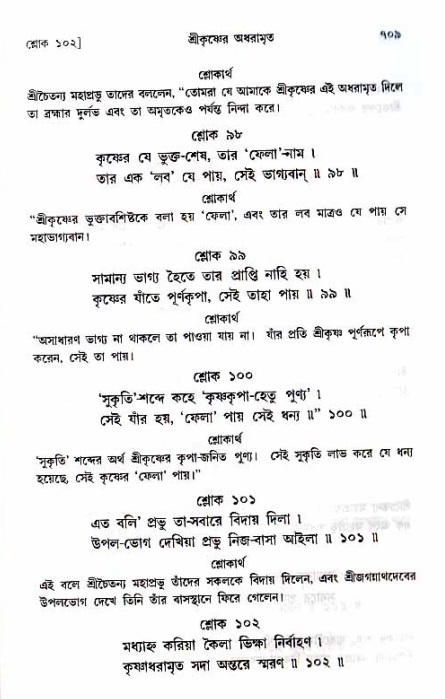 শ্লোক ১০২]
শ্রীকৃষ্ণের অধরামৃত
৭০৯
শ্লোকার্থ
শ্রীচৈতন্য মহাপ্রভু তাদের বললেন, “তোমরা যে আমাকে শ্রীকৃষ্ণের এই অধরামৃত দিলে
তা ব্রহ্মার দুর্লভ এবং তা অমৃতকেও পর্যন্ত নিন্দা করে।
শ্লোক ৯৮
কৃষ্ণের যে ভুক্ত-শেষ, তার ‘ফেলা’-নাম ।
তার এক ‘লব’ যে পায়, সেই ভাগ্যবান্ ॥ ৯৮ ॥
শ্লোকার্থ
“শ্রীকৃষ্ণের ভুক্তাবশিষ্টকে বলা হয় ‘ফেলা’, এবং তার লব মাত্রও যে পায় সে
মহাভাগ্যবান।
শ্লোক ৯৯
সামান্য ভাগ্য হৈতে তার প্রাপ্তি নাহি হয় ।
কৃষ্ণের যাঁতে পূর্ণকৃপা, সেই তাহা পায় ॥ ৯৯ ॥
শ্লোকার্থ
“অসাধারণ ভাগ্য না থাকলে তা পাওয়া যায় না। যাঁর প্রতি শ্রীকৃষ্ণ পূর্ণরূপে কৃপা
করেন, সেই তা পায়।
শ্লোক ১০০
‘সুকৃতি’-শব্দে কহে ‘কৃষ্ণকৃপা-হেতু পুণ্য’ ।
সেই যাঁর হয়, ‘ফেলা’ পায় সেই ধন্য ॥” ১০০ ॥
শ্লোকার্থ
‘সুকৃতি’ শব্দের অর্থ শ্রীকৃষ্ণের কৃপা-জনিত পুণ্য। সেই সুকৃতি লাভ করে যে ধন্য
হয়েছে, সেই কৃষ্ণের ‘ফেলা’ পায়।”
শ্লোক ১০১
এত বলি’ প্রভু তা-সবারে বিদায় দিলা ।
উপল-ভোগ দেখিয়া প্রভু নিজ-বাসা আইলা ॥ ১০১ ॥
শ্লোকার্থ
এই বলে শ্রীচৈতন্য মহাপ্রভু তাঁদের সকলকে বিদায় দিলেন, এবং শ্রীজগন্নাথদেবের
উপলভোগ দেখে তিনি তাঁর বাসস্থানে ফিরে গেলেন।
শ্লোক ১০২
মধ্যাহ্ন করিয়া কৈলা ভিক্ষা নির্বাহণ ।
কৃষ্ণাধরামৃত সদা অন্তরে স্মরণ ॥ ১০২ ॥